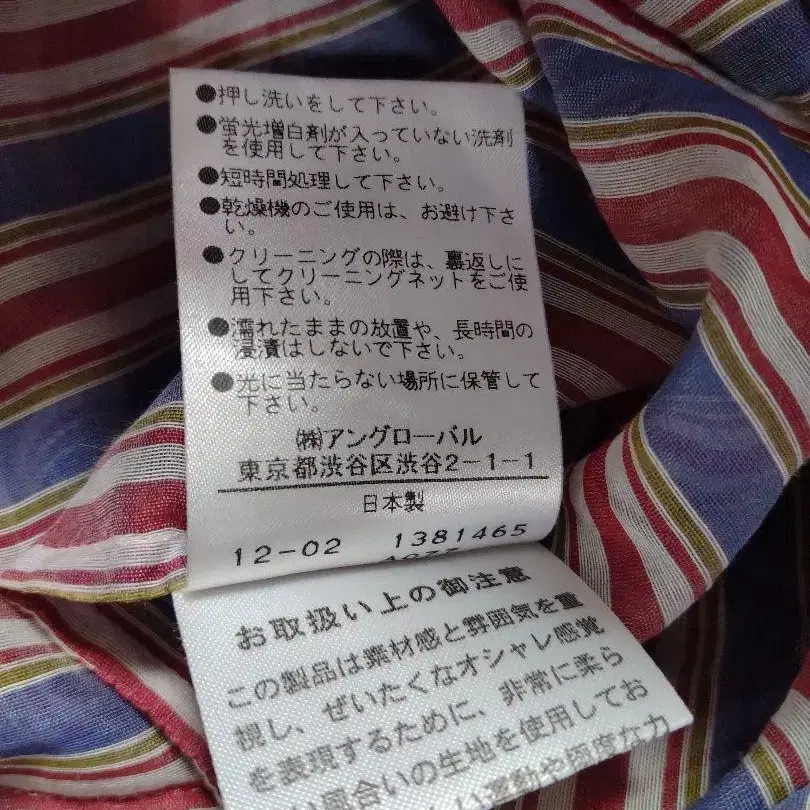 ●押し洗いをして下さい。
●蛍光増白剤が入っていない洗剤
を使用して下さい。
●短時間処理して下さい。
●乾燥機のご使用は、お避け下さ
い。
●クリーニングの際は、裏返しに
してクリーニングネットをご使
用下さい。
●濡れたままの放置や、長時間の
浸漬はしないで下さい。
●光に当たらない場所に保管して
下さい。
㈱アングローバル
東京都渋谷区渋谷2-1-1
日本製
12-02 1381465
お取扱い上の御注意
この製品は素材感と雰囲気を重
視し、ぜいたくなオシャレ感覚
を表現するために、非常に柔ら
風合いの生地を使用してお
運動や極度な力